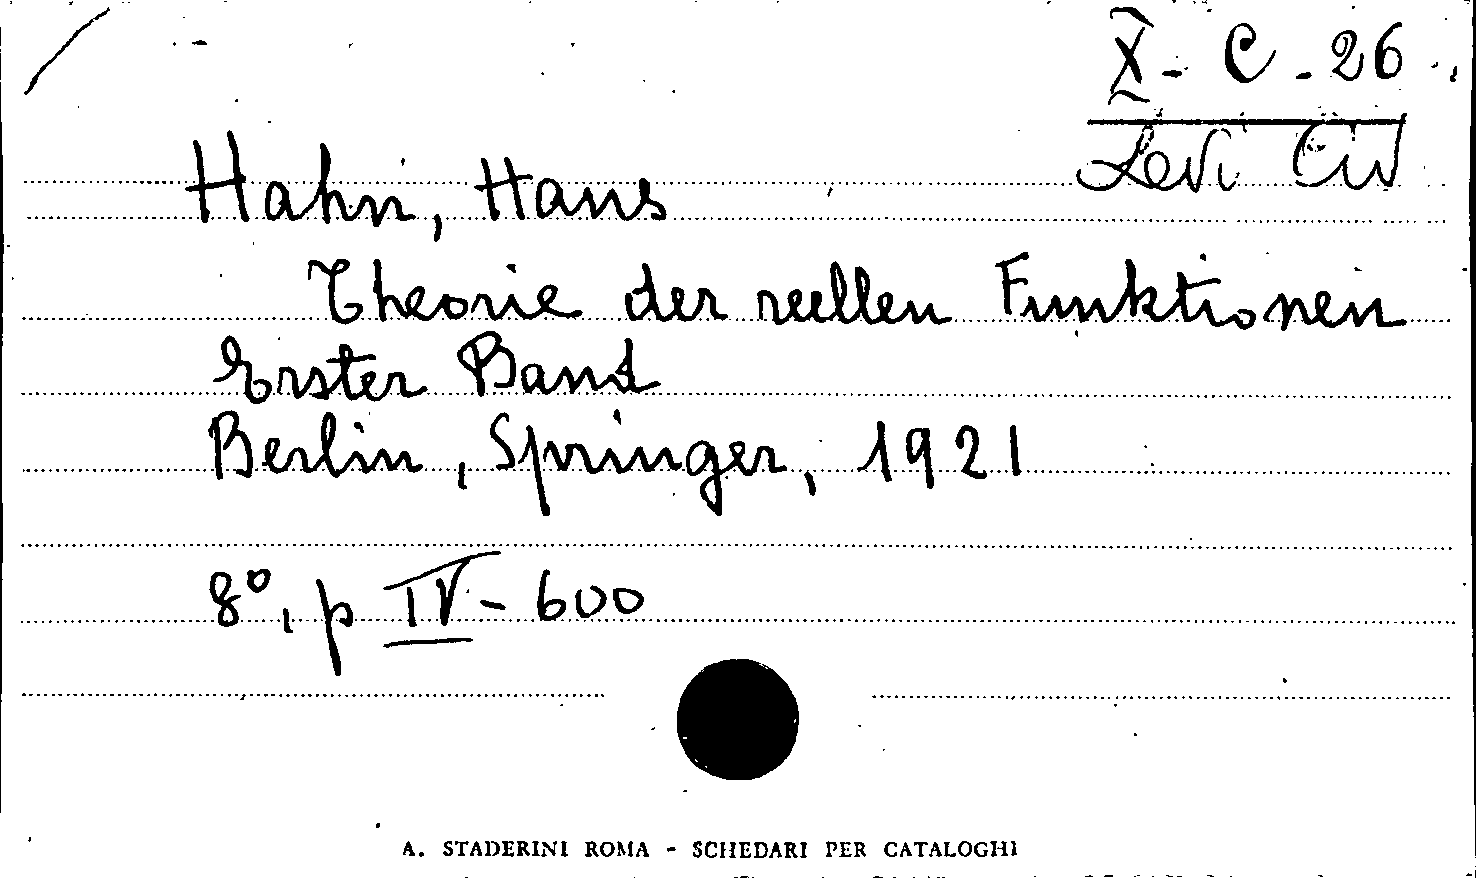 X - C - 26
Levi Civ
Hahn, Hans
Theorie der reellen Funktionen
Erster Band
Berlin, Springer, 1921
8°, p IV - 600
A. STADERINI ROMA - SCHEDARI PER CATALOGHI